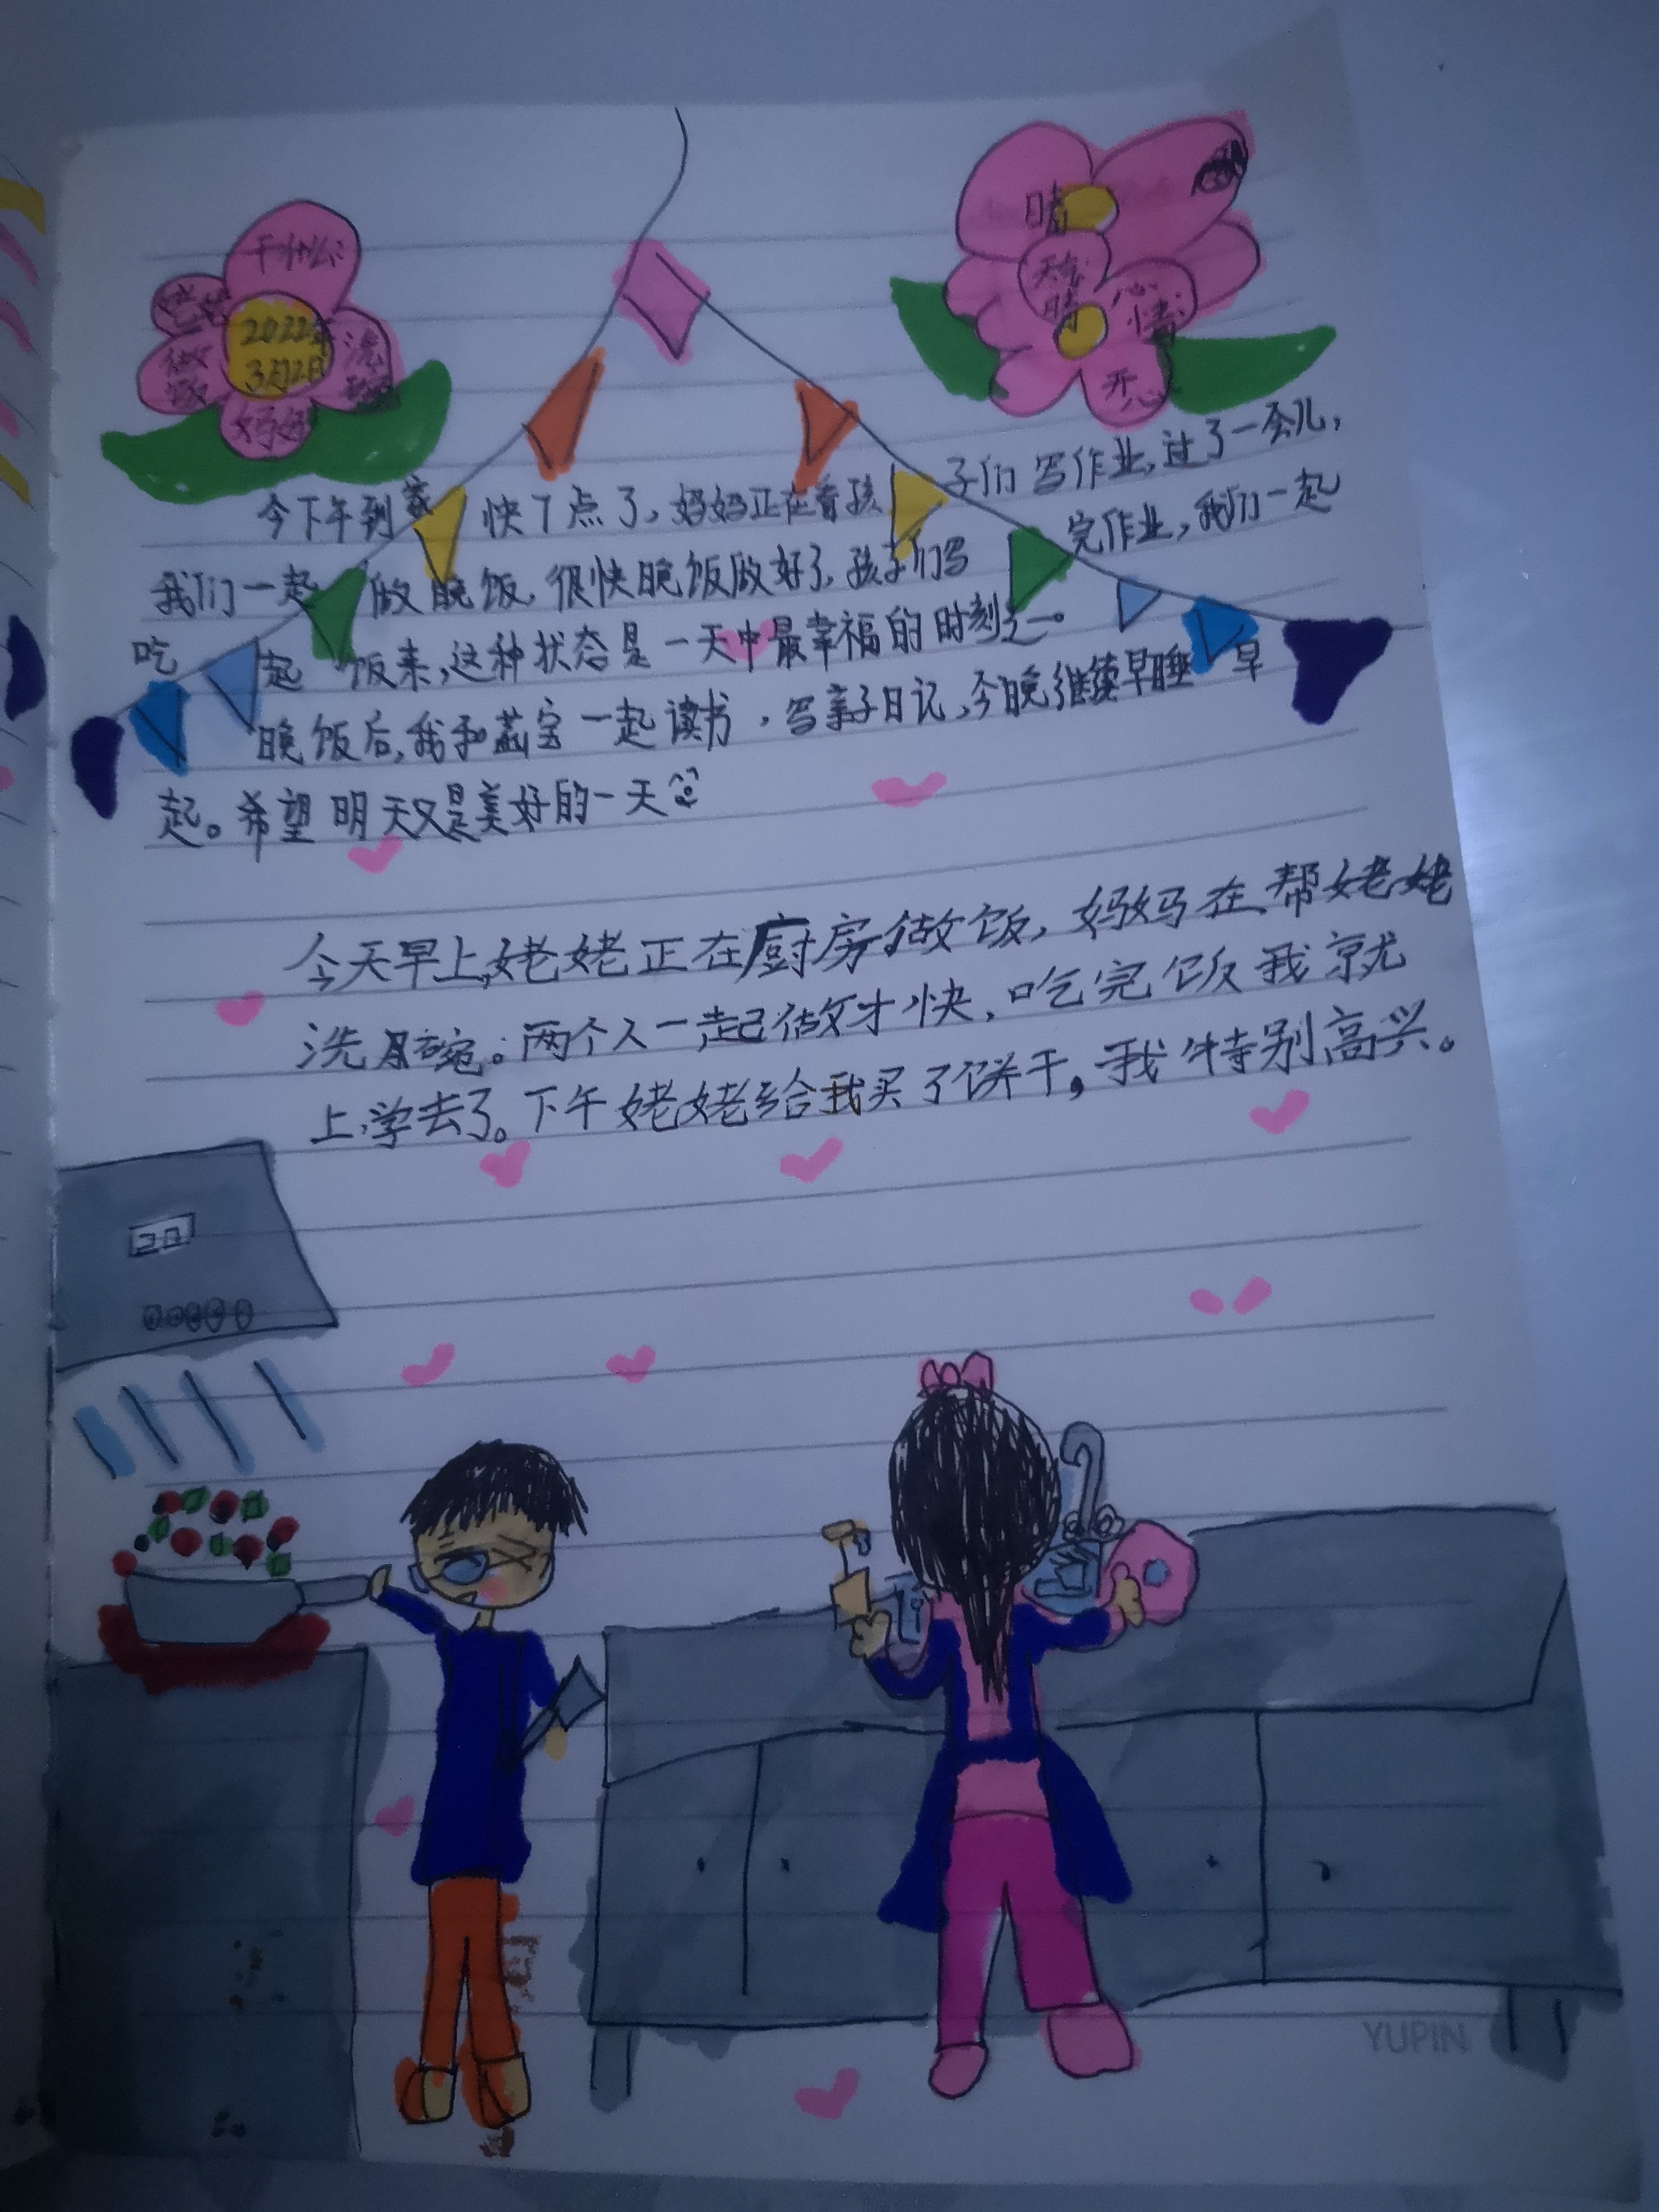 干什么
2022年
3月12日
做
饭
洗
碗
妈妈
晴
天气
晴
心
情
开心
今下午到家快7点了，妈妈正在看孩子们写作业，过了一会儿，
我们一起做晚饭，很快晚饭做好了，孩子们写完作业，我们一起
吃起饭来，这种状态是一天中最幸福的时刻之一。
晚饭后，我和蓝宝一起读书，写亲子日记，今晚继续早睡早
起。希望明天又是美好的一天
今天早上，姥姥正在厨房做饭，妈妈在帮姥姥
洗碗。两个人一起做才快，吃完饭我就
上学去了。下午姥姥给我买了饼干，我特别高兴。
YUPIN